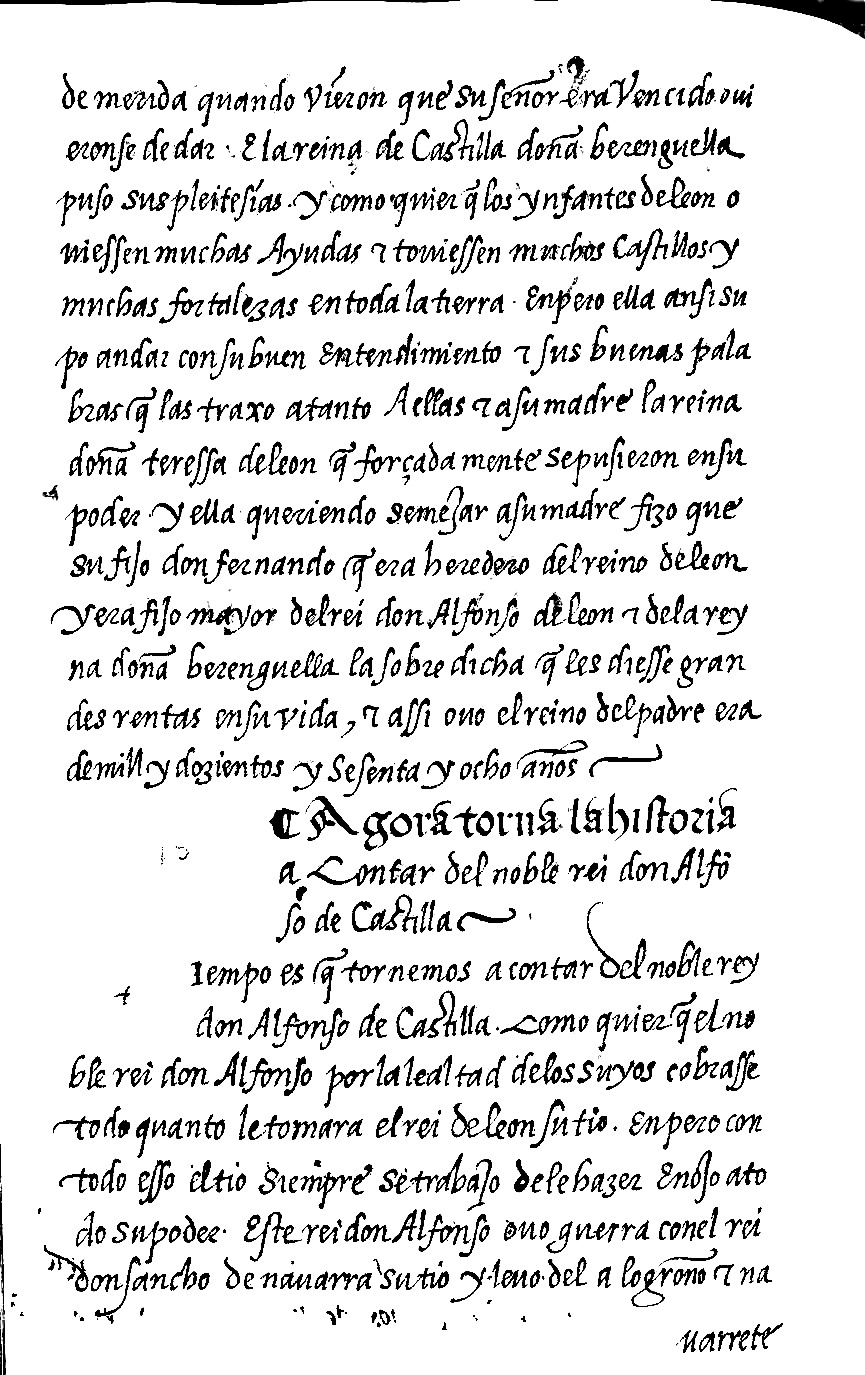 de merida quando vieron que su señor era Vencido oui
eronse de dar . E la reina de Castilla doña berenguella
puso sus pleitesías . y como quier q̃ los ynfantes de leon o
uiessen muchas Ayudas ⁊ touiessen muchos Castillos y
muchas fortalezas en toda la tierra . Enpero ella ansi su
po andar con su buen Entendimiento ⁊ sus buenas pala
bras q̃ las traxo a tanto A ellas ⁊ a su madre la reina
doña teressa de leon q̃ forçada mente se pusieron en su
poder . y ella queriendo semejar a su madre fizo que
su fijo don fernando q̃ era heredero del reino de leon
y era fijo mayor del rei don Alfonso de leon ⁊ de la rey
na doña berenguella la sobre dicha q̃ les diesse gran
des rentas en su vida, ⁊ assi ouo el reino del padre era
de mill y dozientos y sesenta y ocho años
Agora torna la historia
a Contar del noble rei don Alfõ
so de Castilla
Iempo es q̃ tornemos a contar del noble rey
don Alfonso de Castilla . Como quier q̃ el no
ble rei don Alfonso por la lealtad de los suyos cobrasse
todo quanto le tomara el rei de leon su tio . Enpero con
todo esso el tio siempre se trabajo de le hazer Enojo a to
do su poder . Este rei don Alfonso ouo guerra con el rei
don sancho de nauarra su tio y leuo del a logroño ⁊ na
uarrete